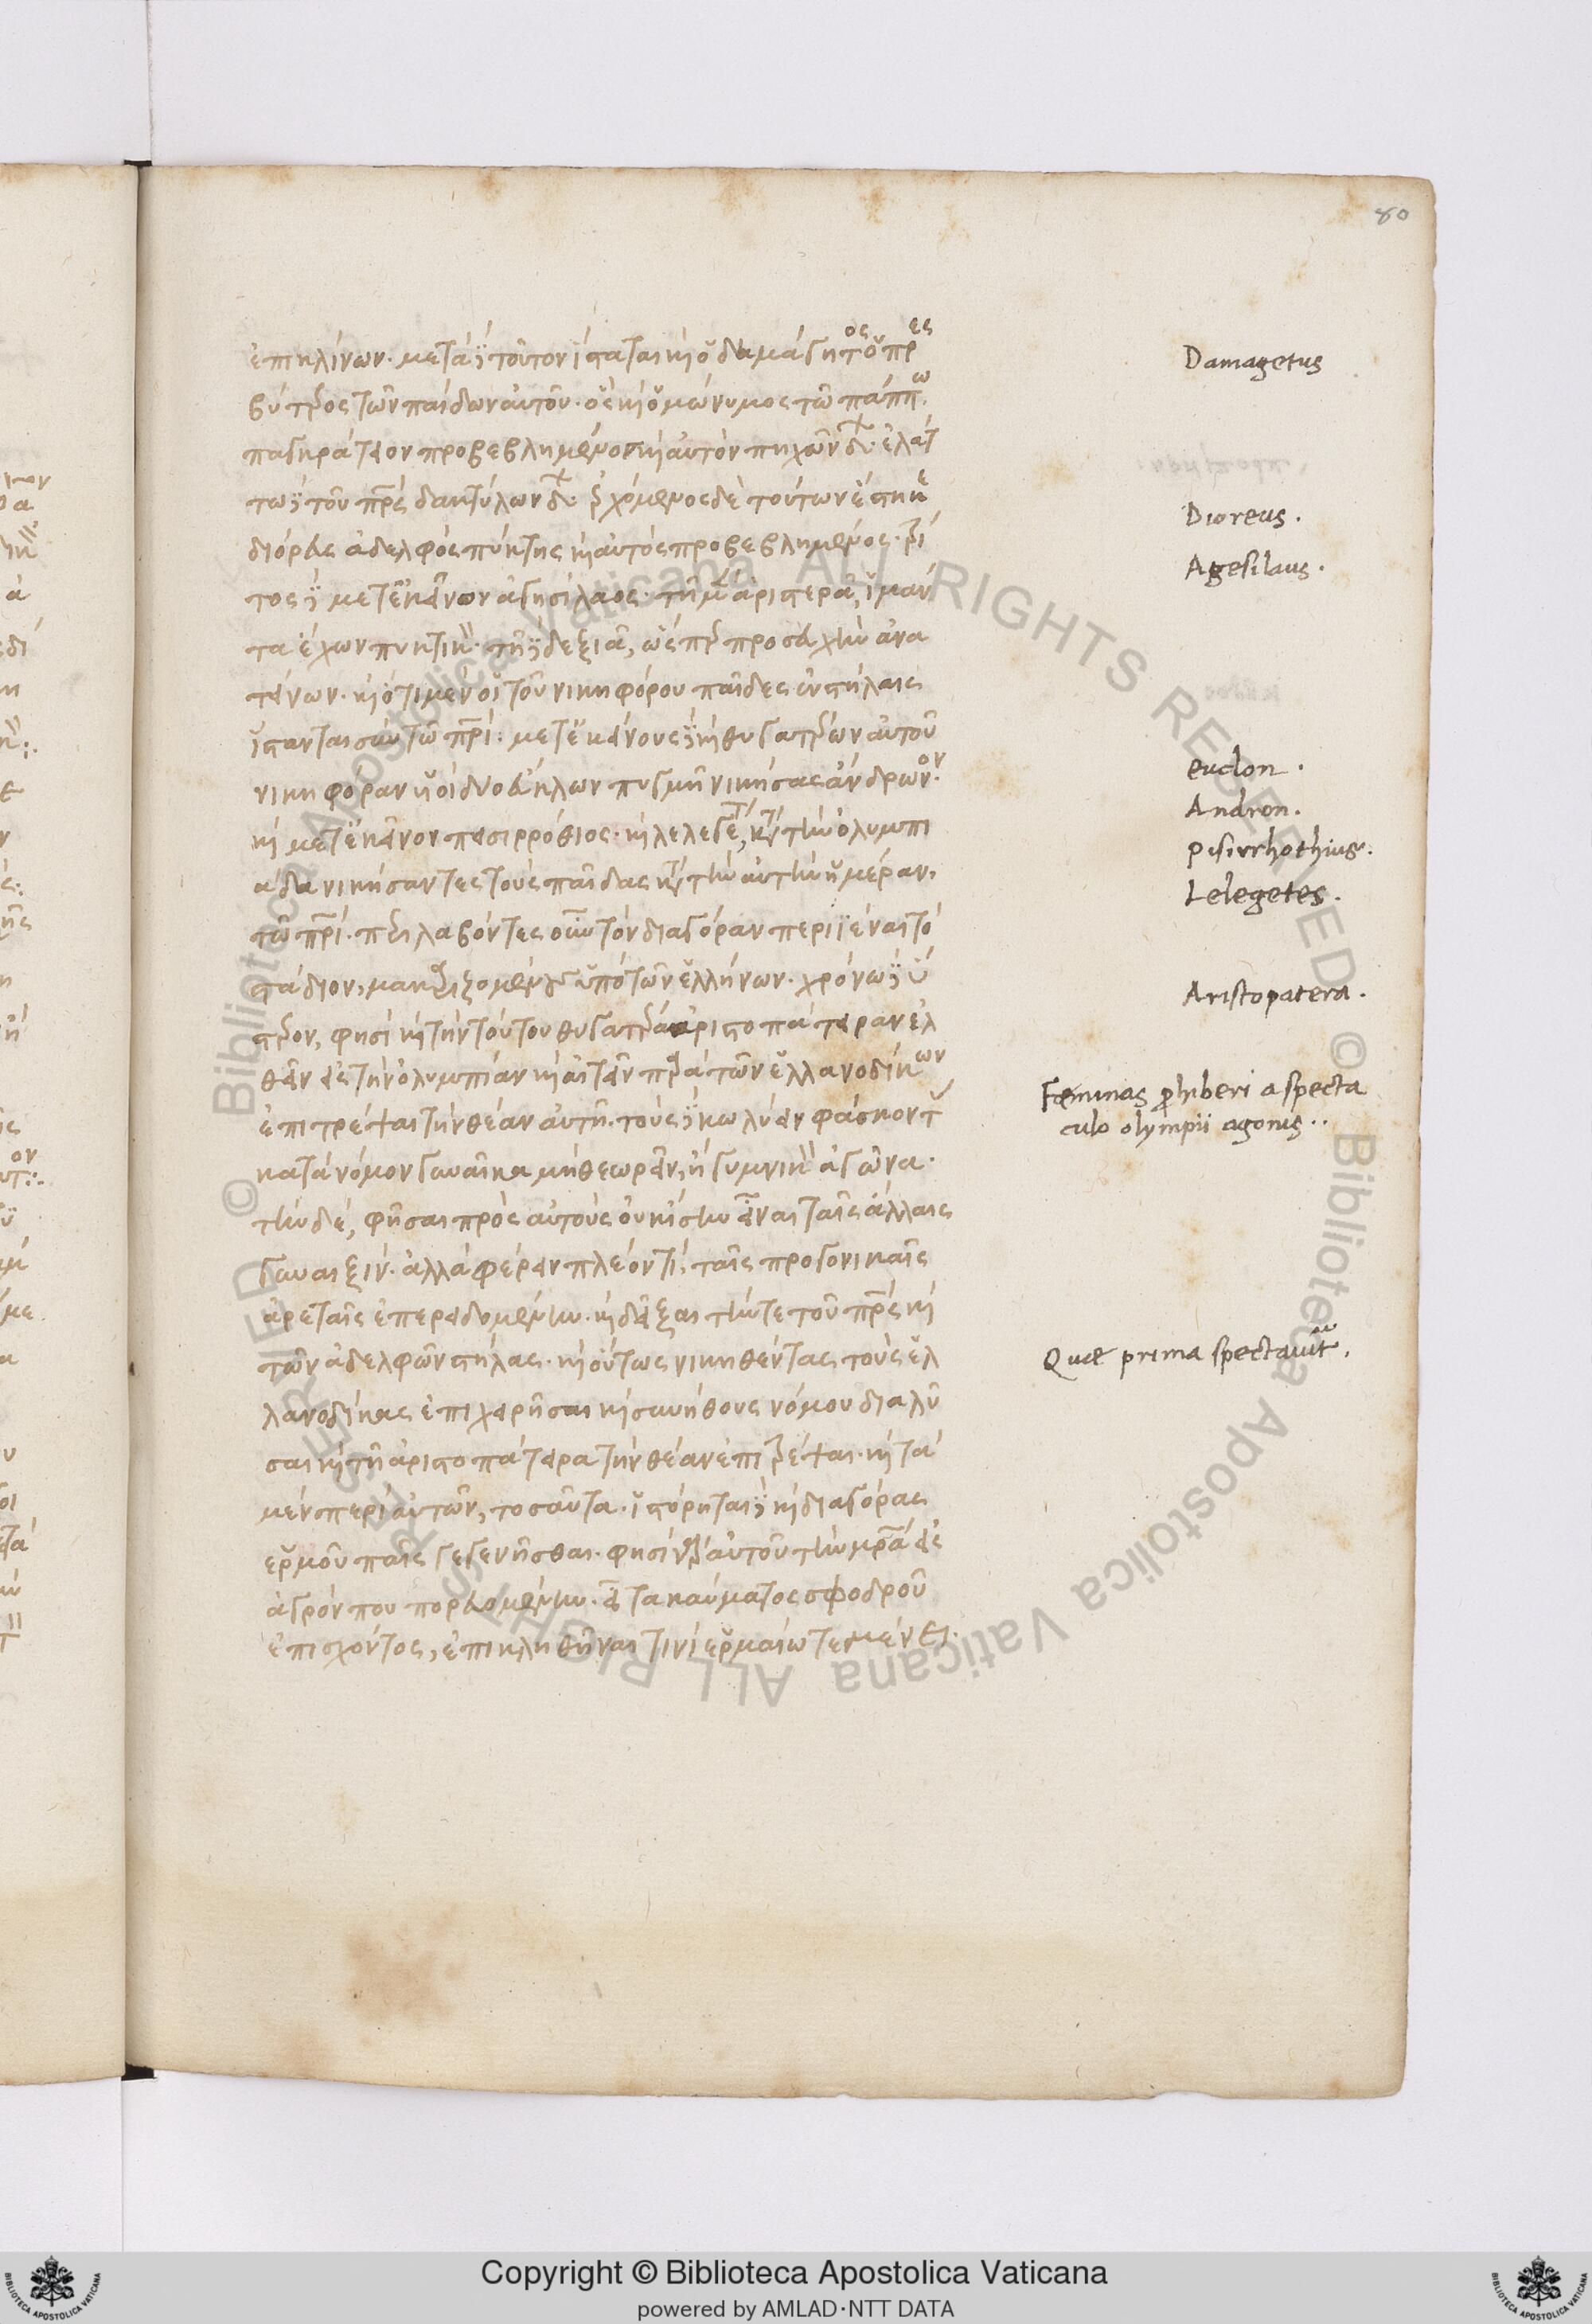 80
ἐπικλίνων. μετὰ δὲ τοῦτον ἵσταται καὶ ὁ δαμάγητος ὁ πρες
βύτερος τῶν παίδων αὐτοῦ. ὃς καὶ ὁμώνυμος τῶ πάππω.
παγκράτιον προβεβλημένος καὶ αὐτὸν πηχῶν δ. ἐλατ
των δὲ τοῦ πρς δακτύλων δ. ἐχόμενος δὲ τούτων ἕστηκε
διόρευς ἀδελφὸς πύκτης καὶ αὐτὸς προβεβλημένος. τρί
τος δὲ μετ' ἐκεῖνον ἀγησίλαος. τῆ μὲν ἀριστερᾶ, ἱμάν
τα ἔχων πυκτικ. τῆ δὲ δεξιᾶ, ὥσπερ προσευχὴν ἀνα
τείνων. καὶ ὅτι μὲν οἱ τοῦ νικηφόρου παῖδες ἐν στήλαις
ἵστανται σὺν τῶ πρί. μετ' ἐκείνους δὲ καὶ θυγατέρων αὐτοῦ
νικηφόραν υἱοὶ δύο εὔκλων πυγμῆ νικήσας ἄνδρων.
καὶ μετ' ἐκεῖνον πεισιρρόθιος. καὶ λελεγετ, κατὰ τὴν ὀλυμπι
άδα νικήσαντες τοὺς παῖδας κατὰ τὴν αὐτὴν ἡμέραν,
τῶ πρί. περιλαβόντες οὖν τὸν διαγόραν περιϊέναι τὸ
στάδιον, μακαριζομένου ὑπὸ τῶν ἑλλήνων. χρόνω δὲ ὕ
στερον, φησὶ καὶ τὴν τούτου θυγατέρα ἀριστοπάτειραν ἐλ
θεῖν εἰς τὴν ὀλυμπίαν καὶ αἰτεῖν παρὰ τῶν ἑλλανοδίκων
ἐπιτρέψαι τὴν θέαν αὐτῆ. τοὺς δὲ κωλύειν φάσκοντ
κατὰ νόμον γυναῖκα μὴ θεωρεῖν, ἢ γυμνικ ἀγῶνα.
τὴν δέ, φῆσαι πρὸς αὐτοὺς οὐκ ἴσην εἶναι ταῖς ἄλλαις
γυναιξίν. ἀλλὰ φέρειν πλέον τί, ταῖς προγονικαῖς
ἀρεταῖς ἐπερειδομένην. καὶ δεῖξαι τήν τε τοῦ πρς καὶ
τῶν ἀδελφῶν στήλας. καὶ οὕτως νικηθέντας τοὺς ἑλ
λανοδίκας ἐπιχειρῆσαι καὶ συνήθους νόμου διαλῦ
σαι καὶ τῆ ἀριστοπάτειρα τὴν θέαν ἐπιτρέψαι. καὶ τὰ
μὲν περὶ αὐτῶν, τοσαῦτα. ἱστόρηται δὲ καὶ διαγόρας
ἑρμοῦ παῖς γεγενῆσθαι. φησὶ γὰρ αὐτοῦ τὴν μρα εἰς
ἀγρόν που πορευομένην. εἶτα καύματος σφοδροῦ
ἐπισχόντος, ἐπικληθῆναι τινὶ ἑρμαίω τεμένει.
Damagetus
Dioreus.
Agesilaus.
euclon.
Andron.
pisirrhothius.
Lelegetes.
Aristopatera.
Fœminas prohiberi a specta
culo olympii agonis..
Quæ prima spectauit.
Copyright © Biblioteca Apostolica Vaticana
powered by AMLAD·NTT DATA
© Biblioteca Apostolica Vaticana ALL RIGHTS RESERVED